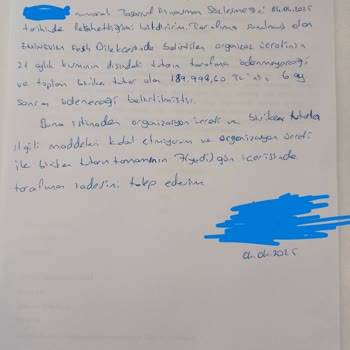 numaralı Tasarruf Finansman Sözleşmesini 04.04.2025
tarihinde feshettiğimi bildiririm. Tarafıma sunulmuş olan
EMİNEVİM Fesih Dilekçesinde belirtilen organizasyon ücretinin
21 aylık kısmının dışındaki tutarın tarafıma ödenmeyeceği
ve toplam biriken tutar olan 189.998,60 TL'nin 6 ay
sonra ödeneceği belirtilmiştir.
Buna istinaden organizasyon ücreti ve biriken tutarla
ilgili maddeleri kabul etmiyorum ve organizasyon ücreti
ile biriken tutarın tamamının 7(yedi) gün içerisinde
tarafıma iadesini talep ederim
04.04.2025